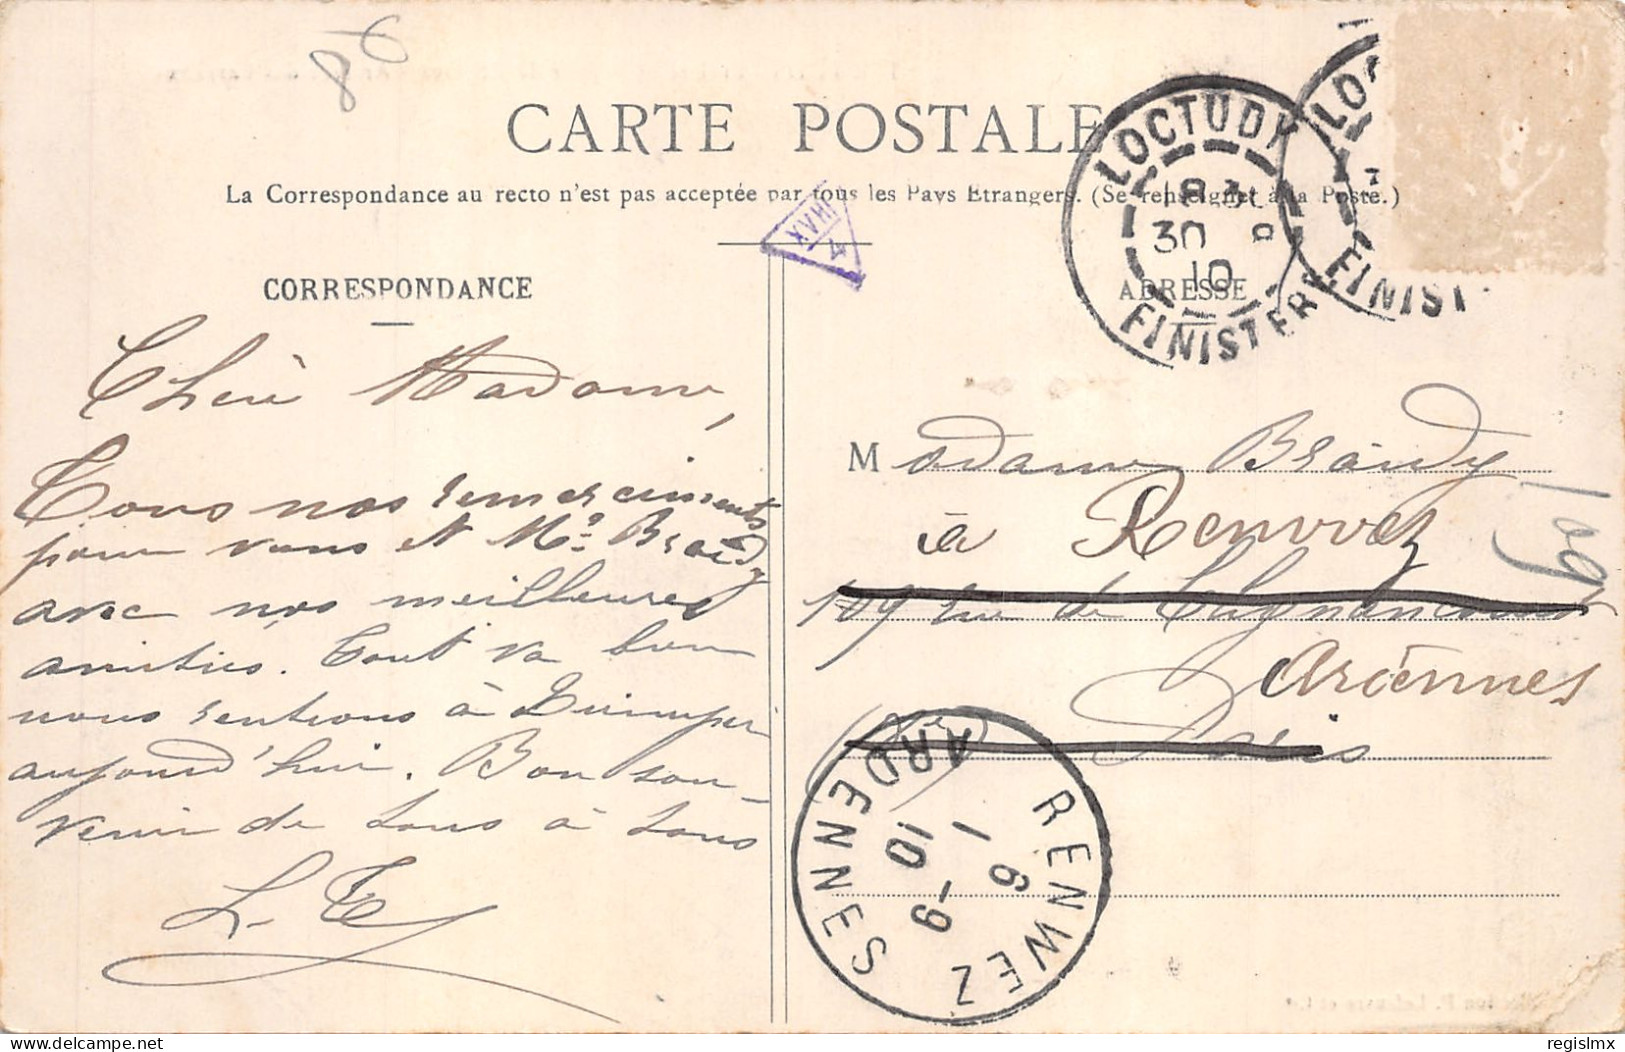 CARTE POSTALE
La Correspondance au recto n'est pas acceptée par tous les Pays Etrangers. (Se renseigner à la Poste.)
CORRESPONDANCE
Chère Madame,
Tous nos remerciements
pour vous et Mr. Braidy
avec nos meilleures
amitiés. Tout va bien
nous rentrons à Quimper
aujourd'hui. Bon sou-
venir de tous à tous
L.
LOCTUDY
30 8
10
FINISTERE
LOC
FINIST
ADRESSE
Madame Braidy
à Renwez
109 rue de Clignancourt
Ardennes
Paris
109
RENWEZ
ARDENNES
1 6 - 9
10
regislmx